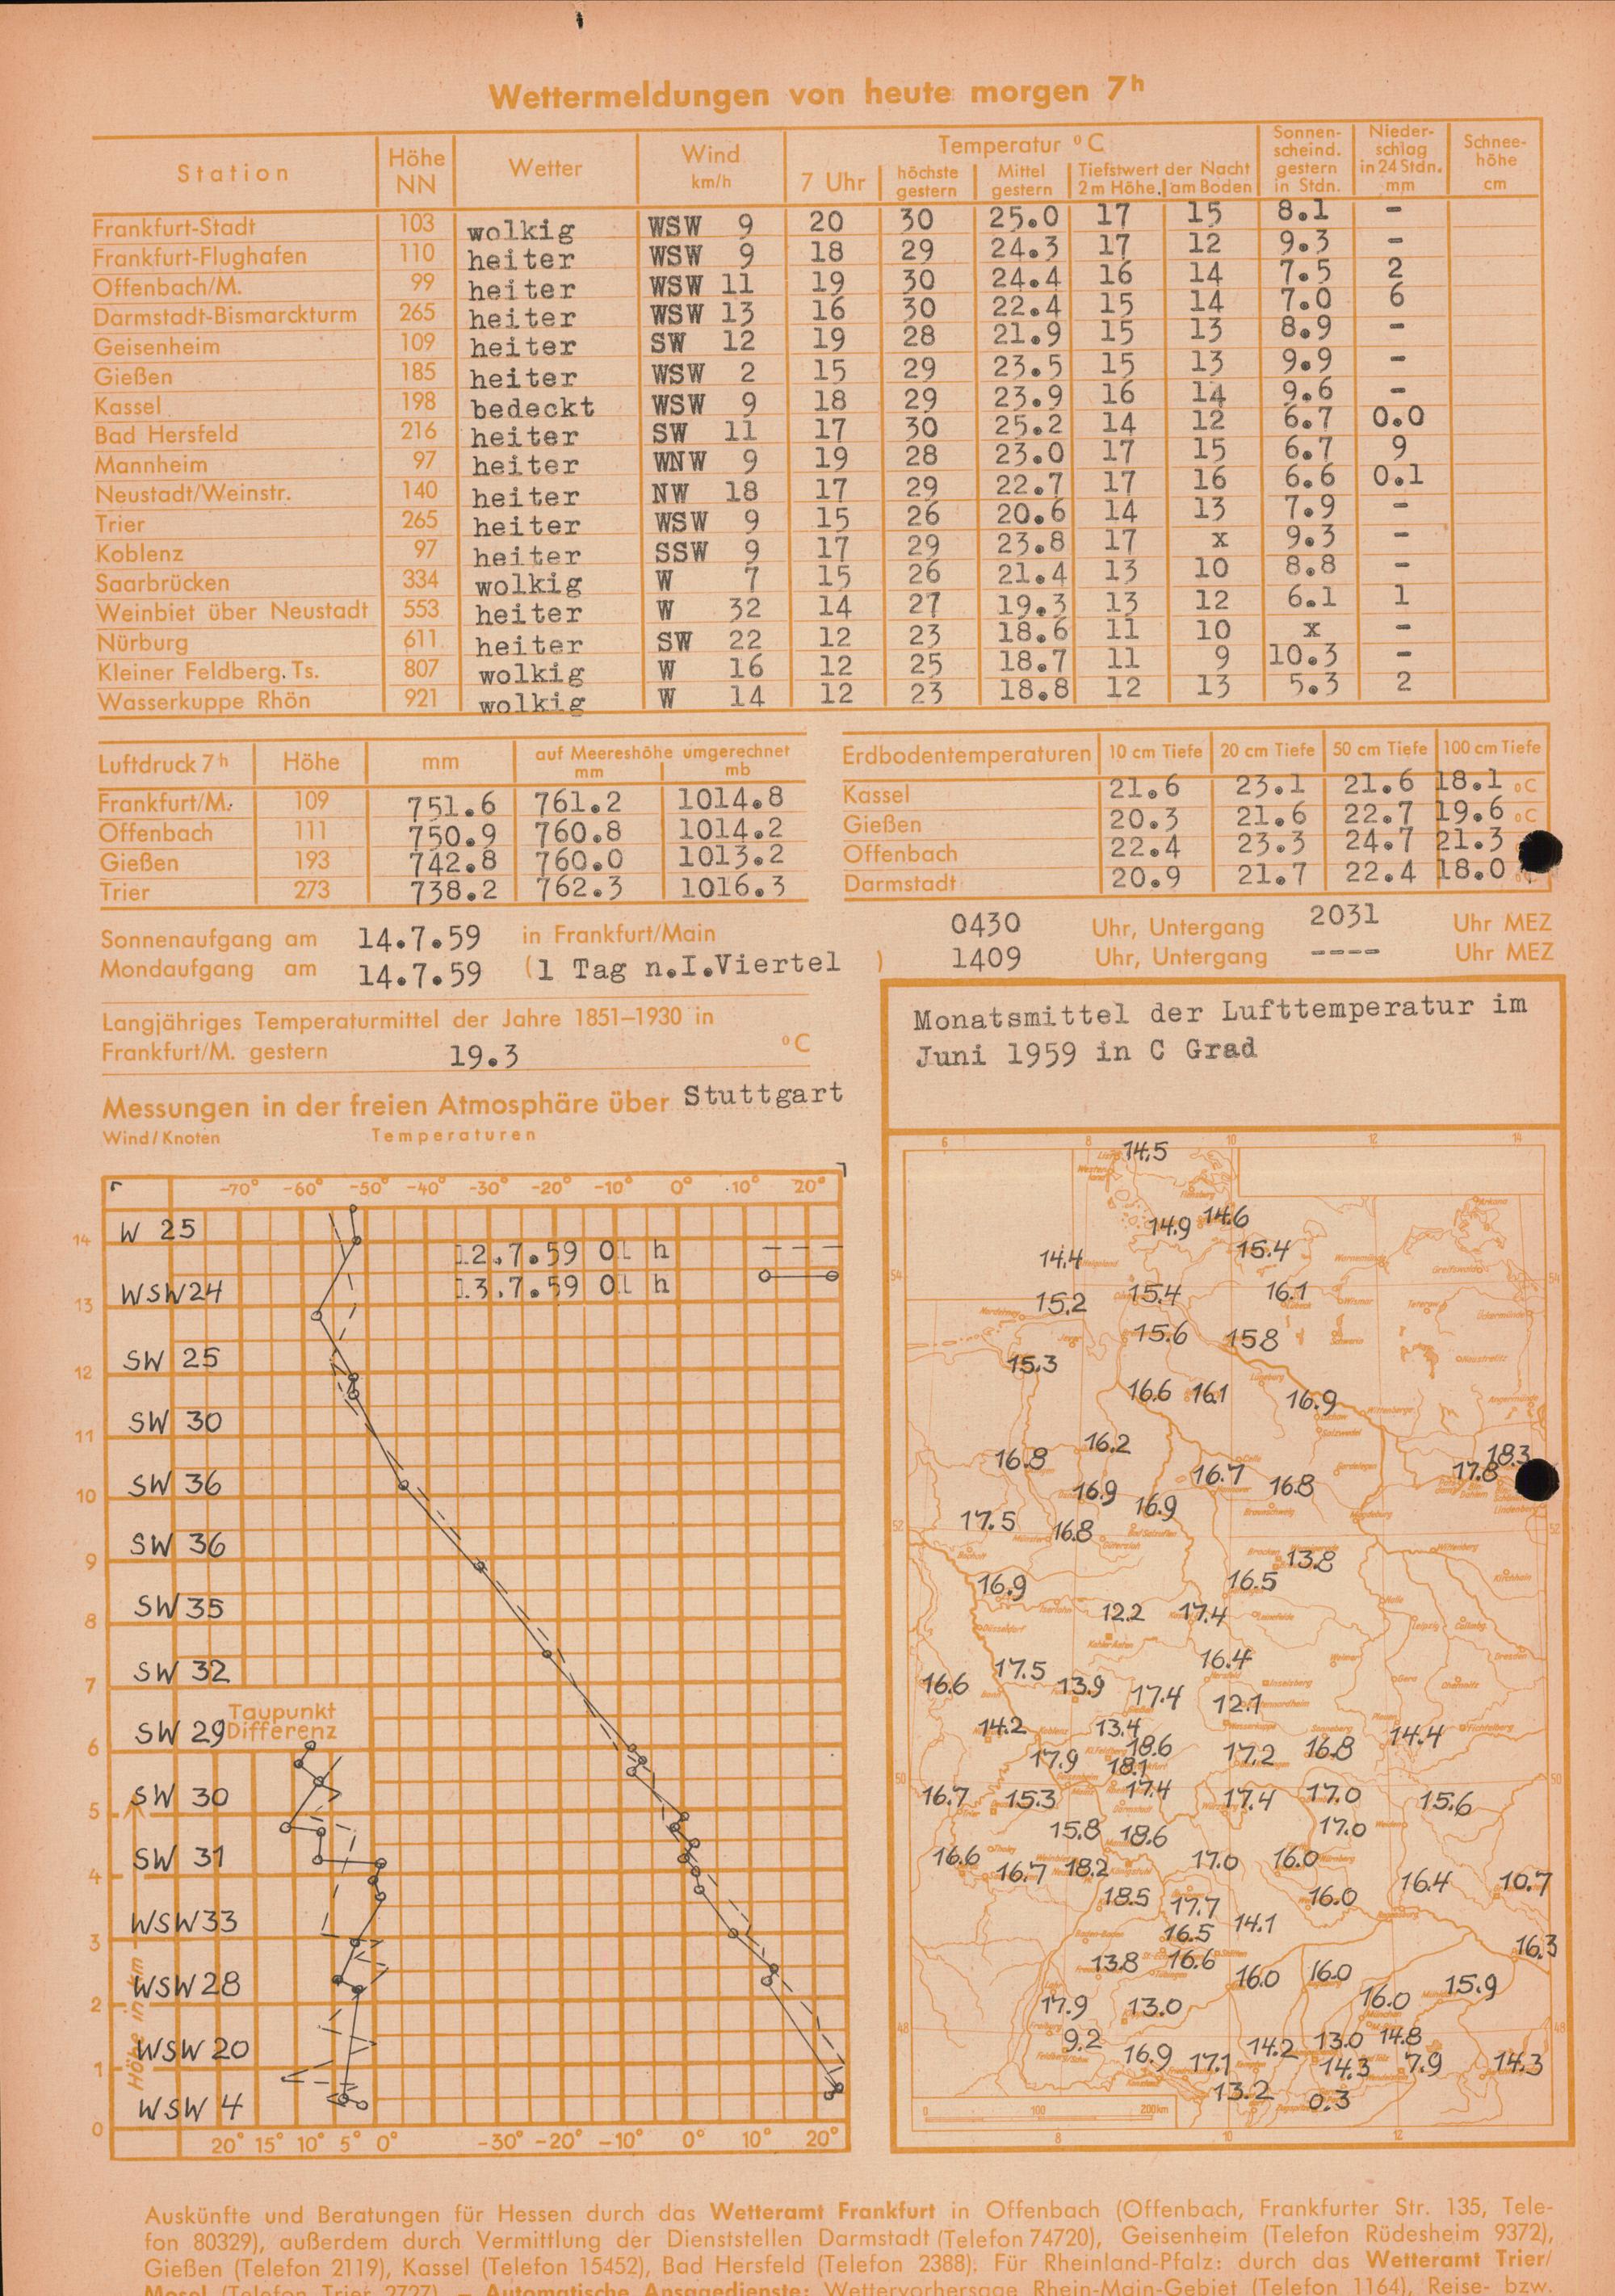 Wettermeldungen von heute morgen 7h
Station Höhe NN Wetter Wind km/h Temperatur °C 7 Uhr höchste gestern Mittel gestern Tiefstwert der Nacht 2 m Höhe am Boden Sonnenscheind. gestern in Stdn. Niederschlag in 24 Stdn. mm Schneehöhe cm
Frankfurt-Stadt 103 wolkig WSW 9 20 30 25.0 17 15 8.1 -
Frankfurt-Flughafen 110 heiter WSW 9 18 29 24.3 17 12 9.3 -
Offenbach/M. 99 heiter WSW 11 19 30 24.4 16 14 7.5 2
Darmstadt-Bismarckturm 265 heiter WSW 13 16 30 22.4 15 14 7.0 6
Geisenheim 109 heiter SW 12 19 28 21.9 15 13 8.9 -
Gießen 185 heiter WSW 2 15 29 23.5 15 13 9.9 -
Kassel 198 bedeckt WSW 9 18 29 23.9 16 14 9.6 -
Bad Hersfeld 216 heiter SW 11 17 30 25.2 14 12 6.7 0.0
Mannheim 97 heiter WNW 9 19 28 23.0 17 15 6.7 9
Neustadt/Weinstr. 140 heiter NW 18 17 29 22.7 17 16 6.6 0.1
Trier 265 heiter WSW 9 15 26 20.6 14 13 7.9 -
Koblenz 97 heiter SSW 9 17 29 23.8 17 x 9.3 -
Saarbrücken 334 wolkig W 7 15 26 21.4 13 10 8.8 -
Weinbiet über Neustadt 553 heiter W 32 14 27 19.3 13 12 6.1 1
Nürburg 611 heiter SW 22 12 23 18.6 11 10 x -
Kleiner Feldberg. Ts. 807 wolkig W 16 12 25 18.7 11 9 10.3 -
Wasserkuppe Rhön 921 wolkig W 14 12 23 18.8 12 13 5.3 2
Luftdruck 7h Höhe mm auf Meereshöhe umgerechnet mm mb
Frankfurt/M. 109 751.6 761.2 1014.8
Offenbach 111 750.9 760.8 1014.2
Gießen 193 742.8 760.0 1013.2
Trier 273 738.2 762.3 1016.3
Erdbodentemperaturen 10 cm Tiefe 20 cm Tiefe 50 cm Tiefe 100 cm Tiefe
Kassel 21.6 23.1 21.6 18.1 °C
Gießen 20.3 21.6 22.7 19.6 °C
Offenbach 22.4 23.3 24.7 21.3
Darmstadt 20.9 21.7 22.4 18.0
Sonnenaufgang am 14.7.59 in Frankfurt/Main 0430 Uhr, Untergang 2031 Uhr MEZ
Mondaufgang am 14.7.59 (1 Tag n.I.Viertel ) 1409 Uhr, Untergang ---- Uhr MEZ
Langjähriges Temperaturmittel der Jahre 1851–1930 in
Frankfurt/M. gestern 19.3 °C
Messungen in der freien Atmosphäre über Stuttgart
Wind/Knoten Temperaturen
-70° -60° -50° -40° -30° -20° -10° 0° 10° 20°
W 25
14
12.7.59 01 h
WSW 24
13.7.59 01 h
13
SW 25
12
SW 30
11
SW 36
10
SW 36
9
SW 35
8
SW 32
7
Taupunkt
SW 29 Differenz
6
SW 30
5
SW 31
4
WSW 33
3
WSW 28
2
WSW 20
1
WSW 4
0
Höhe in km
20° 15° 10° 5° 0° -30° -20° -10° 0° 10° 20°
Monatsmittel der Lufttemperatur im
Juni 1959 in C Grad
6 8 10 12 14
14.5
14.9 14.6
14.4 15.4
54 54
15.2 15.4 16.1
15.6 15.8
15.3
16.6 16.1 16.9
16.8 16.2 18.3
16.7 16.8 17.8
16.9 16.9
17.5 16.8
52 52
13.8
16.9 16.5
12.2 17.4
16.4
16.6 17.5 13.9 17.4 12.1
14.2 13.4 14.4
17.9 18.6 17.2 16.8
18.1
50 50
16.7 15.3 17.4 17.4 17.0 15.6
15.8 18.6 17.0
16.6 16.7 18.2 17.0 16.0 16.4 10.7
18.5 17.7 16.0
16.5 14.1
13.8 16.6 16.3
16.0 16.0 15.9
17.9 13.0 16.0
48 48
9.2 14.2 13.0 14.8
16.9 17.1 14.3 7.9 14.3
13.2 0.3
0 100 200km
8 10 12
Auskünfte und Beratungen für Hessen durch das Wetteramt Frankfurt in Offenbach (Offenbach, Frankfurter Str. 135, Tele-
fon 80329), außerdem durch Vermittlung der Dienststellen Darmstadt (Telefon 74720), Geisenheim (Telefon Rüdesheim 9372),
Gießen (Telefon 2119), Kassel (Telefon 15452), Bad Hersfeld (Telefon 2388). Für Rheinland-Pfalz: durch das Wetteramt Trier/
Mosel (Telefon Trier 2727). – Automatische Ansagedienste: Wettervorhersage Rhein-Main-Gebiet (Telefon 1164), Reise- bzw.